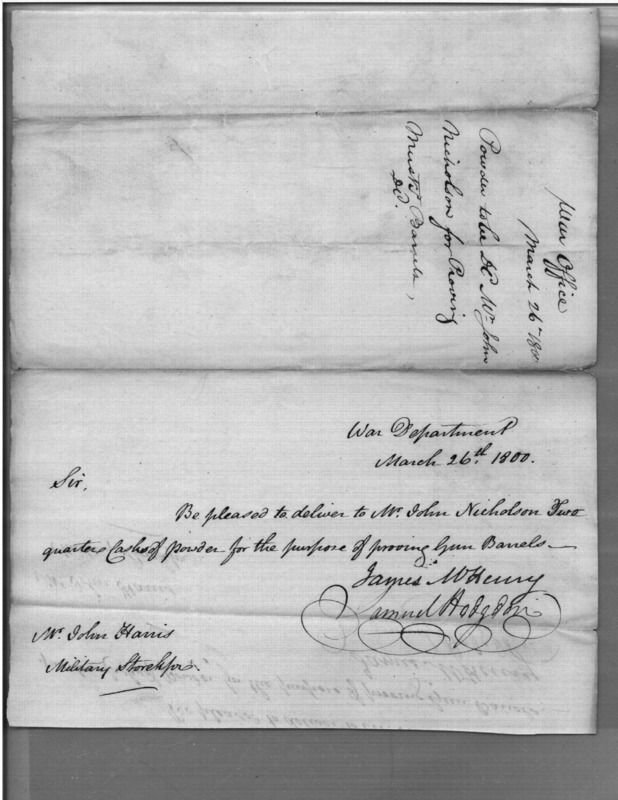 War Office
March 26th 1800
Powder to be Dd Mr John
Nicholson for Proving
Muskt Barrels,
Dd.
War Department
March 26th. 1800.
Sir,
Be pleased to deliver to Mr. John Nicholson Two
quarter Casks of powder for the purpose of proving Gun Barrels—
James McHenry
Samuel Hodgdon
Mr. John Harris
Military Storekpr.